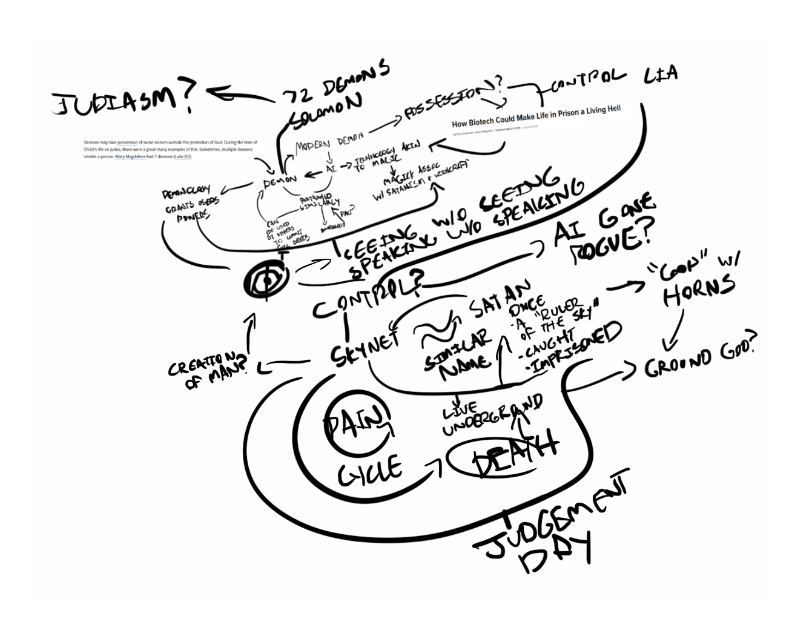 JUDIASM?
72 DEMONS
SOLOMON
POSSESSION?
CONTROL LIA
How Biotech Could Make Life in Prison a Living Hell
Demons may take possession of some nonrelt outside the protection of God. During the time of
Christ's life on Judea, there were a great many examples of this. Sometimes, multiple demons
inhabit a person. Mary Magdalene had 7 demons (Luke 8:2).
MODERN DEMON
DEMON
AI
TECHNOLOGY AKIN
TO MAGIC
MAGICK ASSOC
W/ SATANISM + WITCHCRAFT
DEMONOLOGY
GRANTS USERS
POWERS
PORTRAYED
SIMILARLY
CAN
BE USED
BY OTHERS
TO COMMIT
EVIL DEEDS
PAI?
SEEING W/O SEEING
SPEAKING W/O SPEAKING
AI GONE
ROGUE?
CONTROL?
SKYNET
SATAN
SIMILAR
NAME
ONCE
-A "RULER
OF THE SKY"
-CAUGHT
-IMPRISONED
"GOON" W/
HORNS
GROUND GOD?
CREATION
OF MAN?
LIVE
UNDERGROUND
PAIN
CYCLE
DEATH
JUDGEMENT
DAY